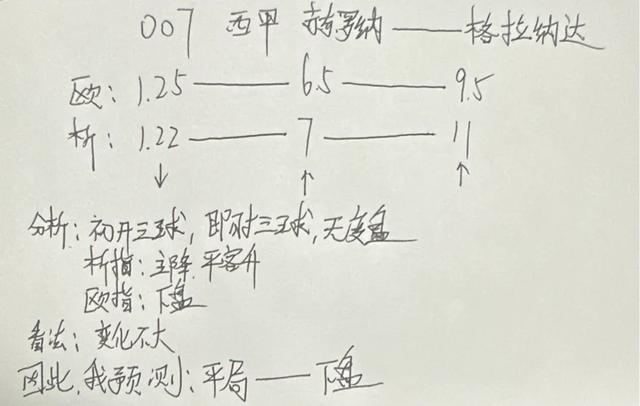 007 西甲 赫罗纳 —— 格拉纳达
欧: 1.25 —— 6.5 —— 9.5
析: 1.22 —— 7 —— 11
↓ ↑ ↑
分析: 初开三球, 即时三球, 天度盘
析指: 主降 平客升
欧指: 下盘
看法: 变化不大
因此, 我预测: 平局 —— 下盘